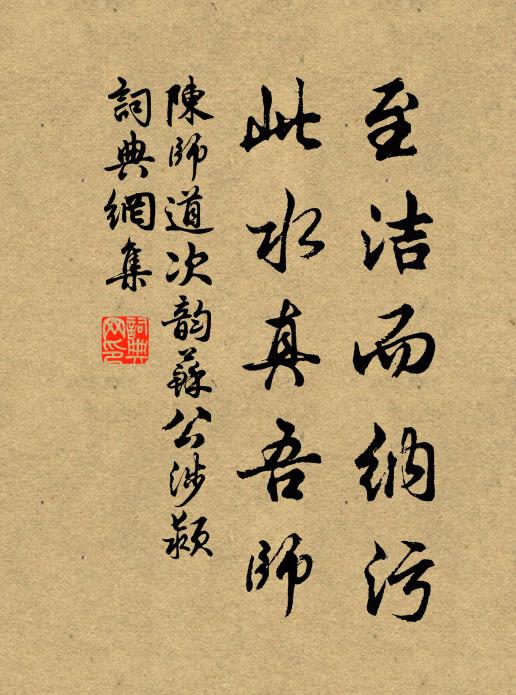 至洁而纳污
此水真吾師
陳師道次韵蘇公涉潁
詞典網集
詞典網印